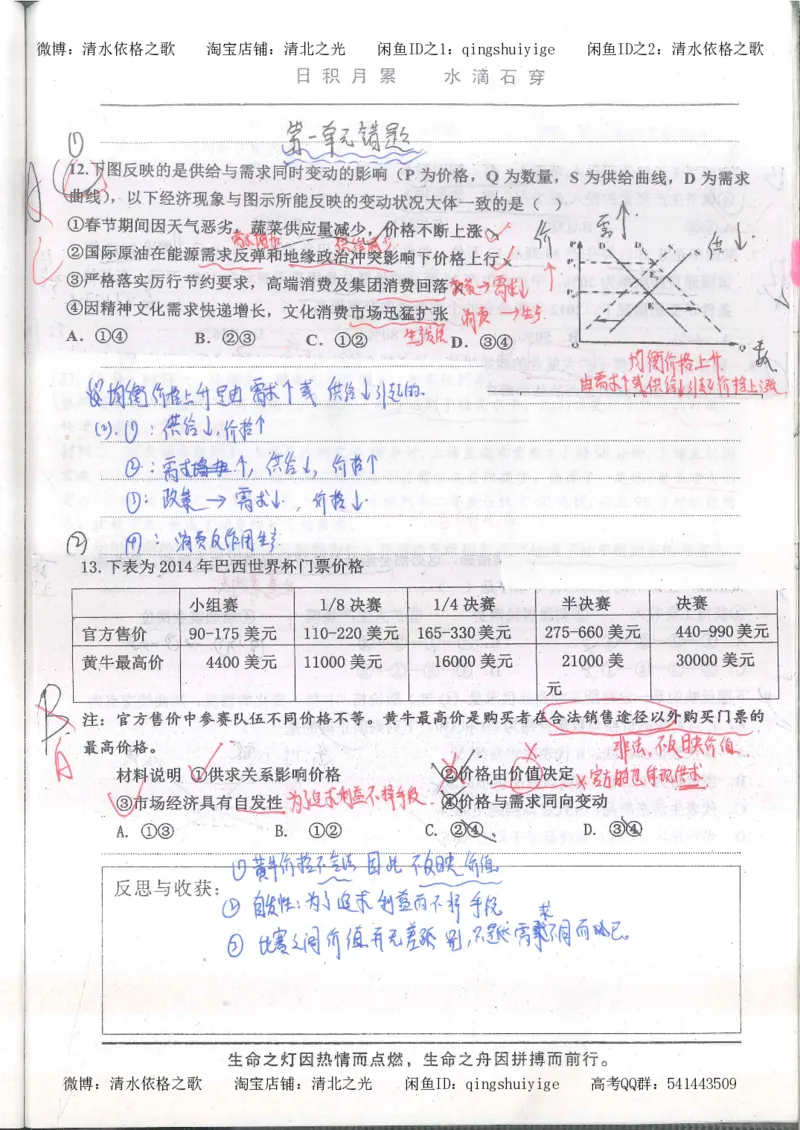 微博：清水依格之歌 淘宝店铺：清北之光 闲鱼ID之1：qingshuiyige 闲鱼ID之2：清水依格之歌
日积月累 水滴石穿
第一单元错题
①
12.下图反映的是供给与需求同时变动的影响（P 为价格，Q 为数量，S 为供给曲线，D 为需求
曲线），以下经济现象与图示所能反映的变动状况大体一致的是（ ）
①春节期间因天气恶劣，蔬菜供应量减少，价格不断上涨
需求增加 供给减少
②国际原油在能源需求反弹和地缘政治冲突影响下价格上行
③严格落实厉行节约要求，高端消费及集团消费回落 政策→需求↓
④因精神文化需求快速增长，文化消费市场迅猛扩张 消费→生产
A．①④ B．②③ C．①② D．③④
价↑ 需↑ 供↓
P
O
均衡价格上升
由需求↑或供给↓引起价格上涨
均衡价格上升是由需求↑或供给↓引起的.
(2).①：供给↓,价格↑
②：需求↑，供给↓，价格↑
③：政策→需求↓，价格↓
④：消费反作用生产
②
13.下表为 2014 年巴西世界杯门票价格
小组赛 1/8 决赛 1/4 决赛 半决赛 决赛
官方售价 90-175 美元 110-220 美元 165-330 美元 275-660 美元 440-990 美元
黄牛最高价 4400 美元 11000 美元 16000 美元 21000 美元 30000 美元
注：官方售价中参赛队伍不同价格不等。黄牛最高价是购买者在合法销售途径以外购买门票的
最高价格。
非法,不反映价值
材料说明 ①供求关系影响价格 ②价格由价值决定
官方的也体现供求
③市场经济具有自发性 为了追求利益不择手段 ④价格与需求同向变动
A. ①③ B. ①② C. ②④ D. ③④
反思与收获：
①黄牛价格不合法 因此 不反映价值
②自发性：为了追求利益而不择手段
③比赛之间价值并无差别,只是需求不同而已
生命之灯因热情而点燃，生命之舟因拼搏而前行。
微博：清水依格之歌 淘宝店铺：清北之光 闲鱼ID：qingshuiyige 高考QQ群：541443509